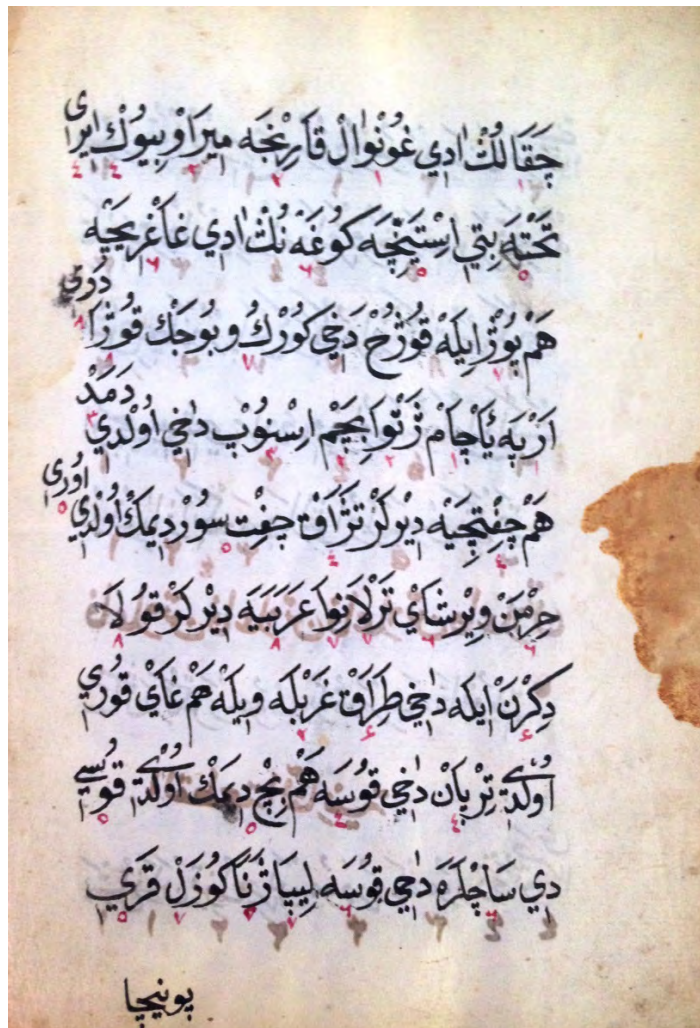 چَقَالُكْ اِدِي غُونْوَالْ قَارِنْجَه مِيرَاوْ بِيُوكْ اِيرَاى
تَخْتَه بِتِي اِسْتِينِيچَه كُوغَه نُكْ اِدِي غَاغْرِيچَه
هَمْ يُوزْ اِيلَه قُوزْرُخْ دَخِي كُورْكُ وبُوجَكْ قُوزْرَا دَرِى
اَرْپَه يَاچَامْ زَتْوَا بِچَمْ اِسْنُوپْ دَاخِي اُولْدِي دَمَدْ
هَمْ چِفْتچِيَه دِيْرْكَرْ تَژَاقْ چِفْتْ سُورْ دِيمَكْ اُولْدِي اوُرِى
حِرْمَنْ وِيْرْشَايْ تَرْلَا نِوَا عَرَبَيَه دِيْرْكَرْ قُولَا
دِكِرْنْ اِيلَه دَاخِي طِرَاقْ غَرَبْلَه وِيلَه هَمْ غَايْ قُورِي
اُولْدِى تِرْپَانْ دَاخِي قُوسَه هَمْ بِچْ دِمَكْ اُولْدِى قُوسِي
دِي سَاچْلَرَه دَاخِي قُوسَه لِيپَا ژَنَا كُوزَلْ قَرِي
پونيچا